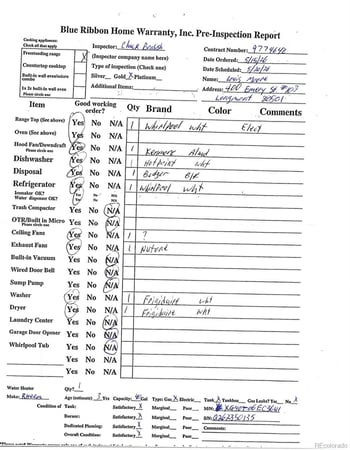 Blue Ribbon Home Warranty, Inc. Pre-Inspection Report
Cooking appliances:
Check all that apply
Freestanding range X
Countertop cooktop
Built-in wall oven/micro combo
Is it built-in wall oven
Please circle one
Inspector: Chuck
(Inspector company name)
Type of Inspection (Check one)
Silver Gold X Platinum
Additional Items:
Contract Number:
Date Ordered:
Date Scheduled:
Name: Louis
Address: 400 Emery St #107
Longmont 80501
Item Good working order? Qty Brand Color Comments
Range Top (See above) Yes No N/A 1 Whirlpool wht Elect
Oven (See above) Yes No N/A
Hood Fan/Downdraft Yes No N/A 1 Kenmore Almd
Please circle one
Dishwasher Yes No N/A 1 Hotpoint wht
Disposal Yes No N/A 1 Badger Blk
Refrigerator Yes No N/A 1 Whirlpool wht
Icemaker OK? Yes No N/A
Water dispenser OK? Yes No N/A
Trash Compactor Yes No N/A
OTR/Built in Micro Yes No N/A
Please circle one
Ceiling Fans Yes No N/A 1 ?
Exhaust Fans Yes No N/A 1 Nutone
Built-in Vacuum Yes No N/A
Wired Door Bell Yes No N/A
Sump Pump Yes No N/A
Washer Yes No N/A 1 Frigidaire wht
Dryer Yes No N/A 1 Frigidaire wht
Laundry Center Yes No N/A
Garage Door Opener Yes No N/A
Whirlpool Tub Yes No N/A
Yes No N/A
Yes No N/A
Water Heater Qty: 1
Make: Rheem Age (estimate) Yrs Capacity: 40 Gal Type: Gas X Electric Tank X Tankless Gas Leaks? Yes No X
Condition of Tank: Satisfactory X Marginal Poor M/N:
Burner: Satisfactory X Marginal Poor S/N: Q262350135
Dedicated Plumbing: Satisfactory X Marginal Poor Comments:
Overall Condition: Satisfactory X Marginal Poor
REcolorado